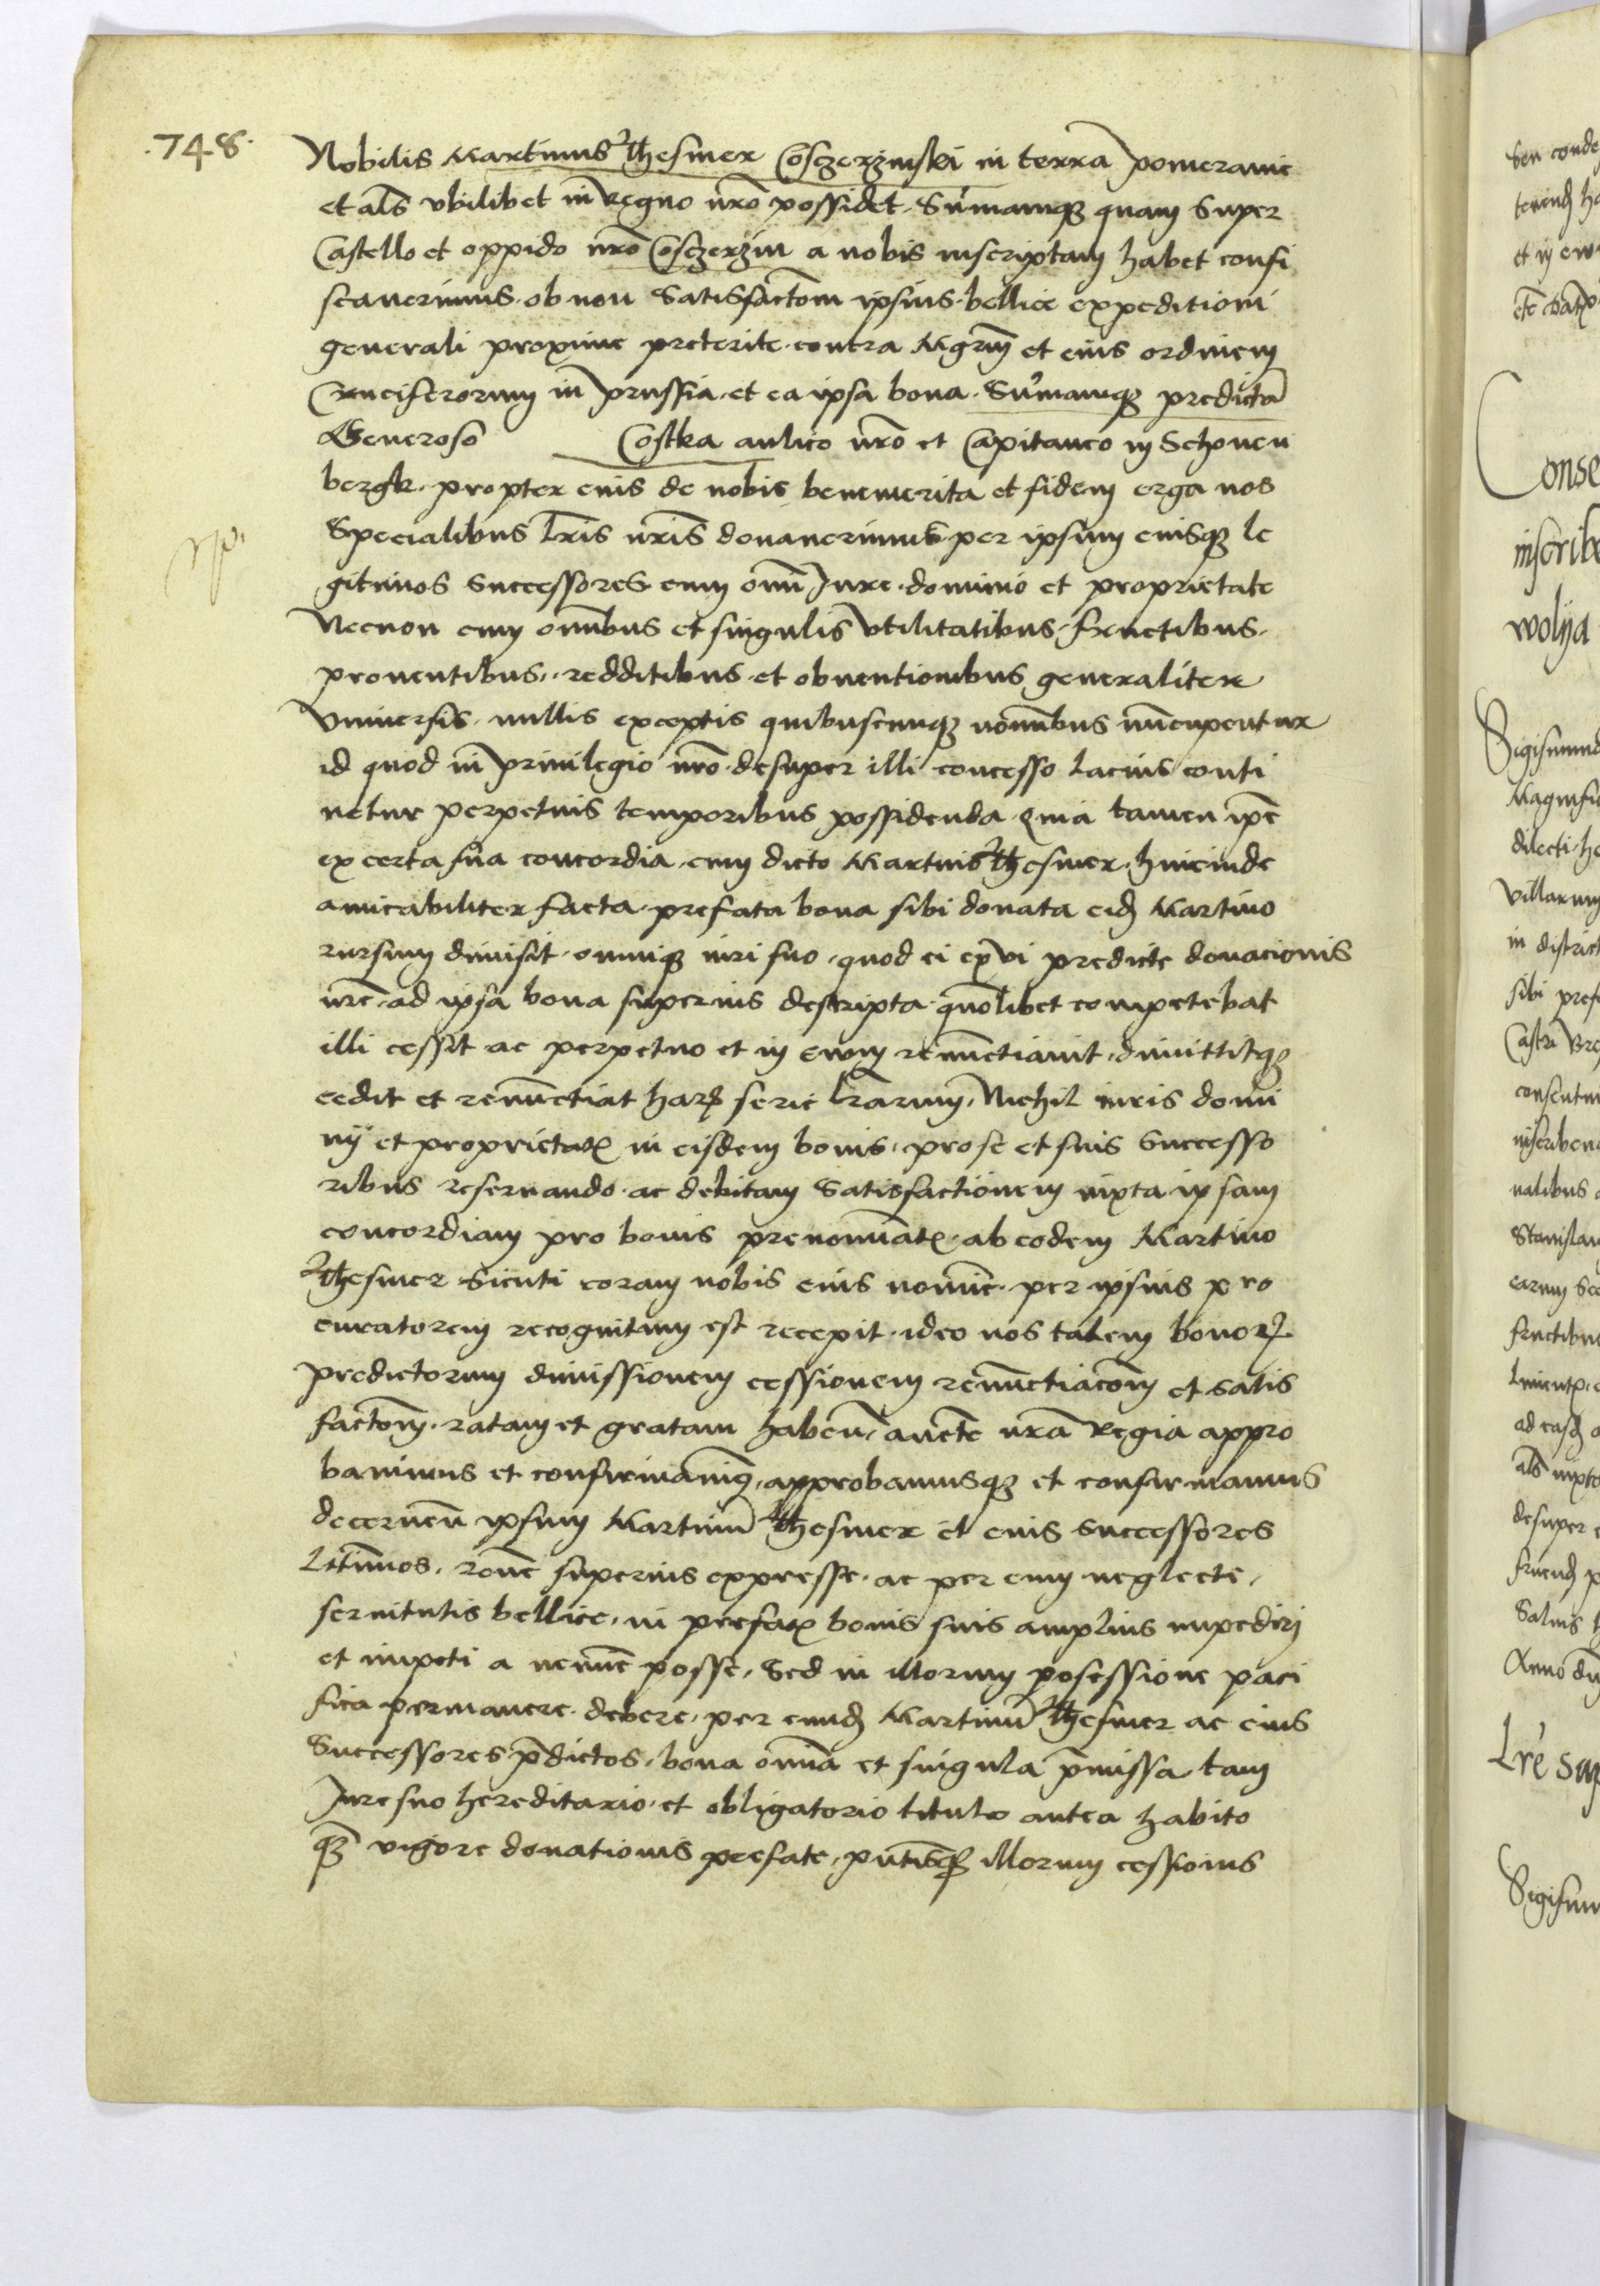 .748.
Nobilis Martinus Thesmer Cosczerzinski in terra Pomeranie
et als vbilibet in Regno nro possidet. Sumamq quam super
Castello et oppido nro Cosczerzin a nobis inscriptam habet confi
scauerimus. ob non satisfactom ipsius. bellice expeditioni
generali proxime preterite. contra Mgrm et eius ordinem
Cruciferorum in Prussia. et ea ipsa bona. Sumamq predicta
Generoso Costka aulico nro et Capitaneo in Schonen
bergk. propter eius de nobis benemerita et fidem erga nos
Specialibus lris nris donauerimus per ipsum eiusq le
gitimos successores cum omi Iure. dominio et proprietate
Necnon cum omibus et singulis vtilitatibus. fructibus.
prouentibus. redditibus. et obuentionibus generaliter
vniuersis. nullis exceptis quibuscunq nominibus nuncupentur
id quod in priuilegio nro. desuper illi concesso lacius conti
netur perpetuis temporibus possidenda. Quia tamen ipe
ex certa sua concordia. cum dicto Martino Thesmer. hincinde
amicabiliter facta. prefata bona sibi donata eid Martino
rursum dimisit. omniq iuri suo. quod ei ex vi predicte donacionis
nre. ad ipsa bona superius descripta. quolibet competebat
illi cessit ac perpetuo et in ewm renunctiauit. dimittitq
cedit et renunctiat harum serie lrarum. Nichil iuris domi
nij et proprietatis in eisdem bonis. pro se et suis successo
ribus reseruando. ac debitam satisfactionem iuxta ipsam
concordiam pro bonis prenominatis. ab eodem Martino
Thesmer sicuti coram nobis eius nomine. per ipsius pro
curatorem recognitum est recepit. ideo nos talem bonor
predictorum dimissionem cessionem renunctiacom et satis
factom. ratam et gratam haben. aucte nra Regia appro
bauimus et confirmauimus. approbamusq et confirmamus
decernen ipsum Martinum Thesmer et eius successores
litimos. rone superius expresse. ac per eum neglecte.
seruitutis bellice. in prefatis bonis suis amplius impediri
et impeti a nemine posse. Sed in illorum possessione paci
fica permanere. debere. per eund Martinum Thesmer ac eius
Successores pdictos. bona omnia et singula pmissa tam
Iure suo hereditario. et obligatorio titulo antea habito
q vigore donationis prefate. pntisq illorum cessionis